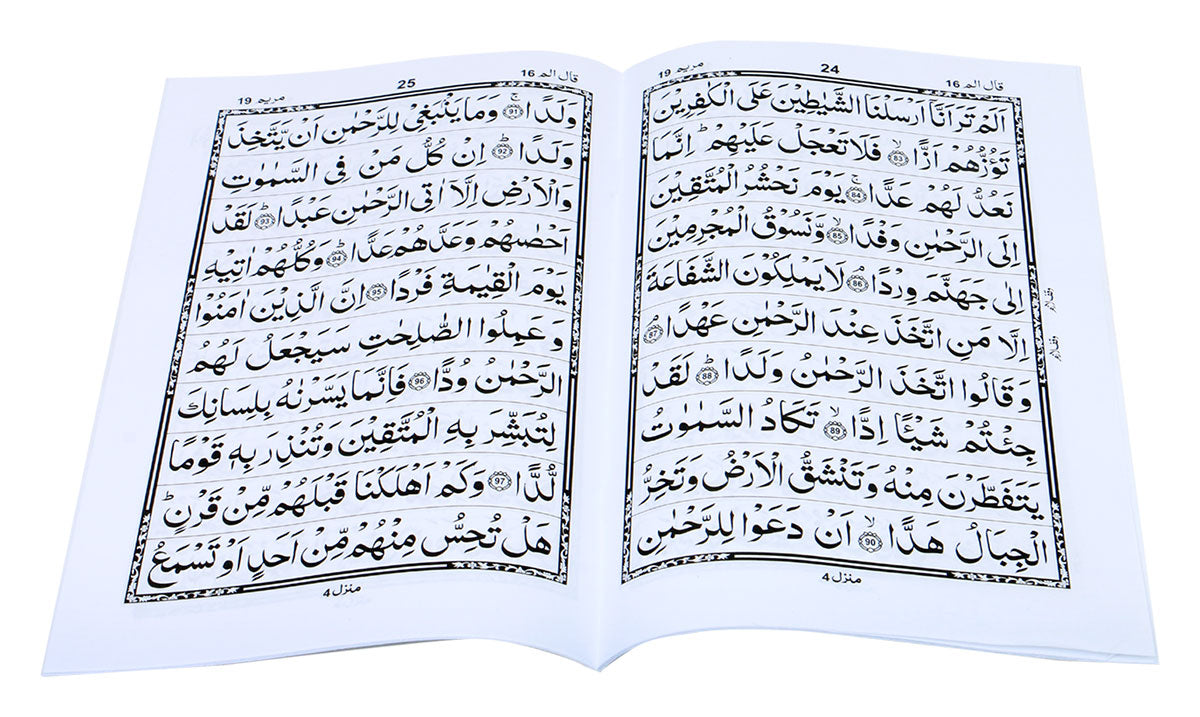 قال الم 16
24
مريم 19
اَلَمْ تَرَ اَنَّاۤ اَرْسَلْنَا الشَّيٰطِيْنَ عَلَى الْكٰفِرِيْنَ
تَؤُزُّهُمْ اَزًّا ۙ 83 فَلَا تَعْجَلْ عَلَيْهِمْ ؕ اِنَّمَا
نَعُدُّ لَهُمْ عَدًّا ۚ 84 يَوْمَ نَحْشُرُ الْمُتَّقِيْنَ
اِلَى الرَّحْمٰنِ وَفْدًا ۙ 85 وَّنَسُوْقُ الْمُجْرِمِيْنَ
اِلٰى جَهَنَّمَ وِرْدًا ۘ 86 لَا يَمْلِكُوْنَ الشَّفَاعَةَ
اِلَّا مَنِ اتَّخَذَ عِنْدَ الرَّحْمٰنِ عَهْدًا ۘ 87
وَ قَالُوا اتَّخَذَ الرَّحْمٰنُ وَلَدًا ؕ 88 لَقَدْ
جِئْتُمْ شَيْـًٔا اِدًّا ۙ 89 تَكَادُ السَّمٰوٰتُ
يَتَفَطَّرْنَ مِنْهُ وَ تَنْشَقُّ الْاَرْضُ وَ تَخِرُّ
الْجِبَالُ هَدًّا ۙ 90 اَنْ دَعَوْا لِلرَّحْمٰنِ
منزل 4
قال الم 16
25
مريم 19
وَلَدًا ۚ 91 وَمَا يَنْۢبَغِيْ لِلرَّحْمٰنِ اَنْ يَّتَّخِذَ
وَلَدًا ؕ 92 اِنْ كُلُّ مَنْ فِي السَّمٰوٰتِ
وَالْاَرْضِ اِلَّاۤ اٰتِي الرَّحْمٰنِ عَبْدًا ؕ 93 لَقَدْ
اَحْصٰىهُمْ وَعَدَّهُمْ عَدًّا ؕ 94 وَكُلُّهُمْ اٰتِيْهِ
يَوْمَ الْقِيٰمَةِ فَرْدًا 95 اِنَّ الَّذِيْنَ اٰمَنُوْا
وَ عَمِلُوا الصّٰلِحٰتِ سَيَجْعَلُ لَهُمُ
الرَّحْمٰنُ وُدًّا 96 فَاِنَّمَا يَسَّرْنٰهُ بِلِسَانِكَ
لِتُبَشِّرَ بِهِ الْمُتَّقِيْنَ وَتُنْذِرَ بِهٖ قَوْمًا
لُّدًّا 97 وَكَمْ اَهْلَكْنَا قَبْلَهُمْ مِّنْ قَرْنٍ ؕ
هَلْ تُحِسُّ مِنْهُمْ مِّنْ اَحَدٍ اَوْ تَسْمَعُ
منزل 4